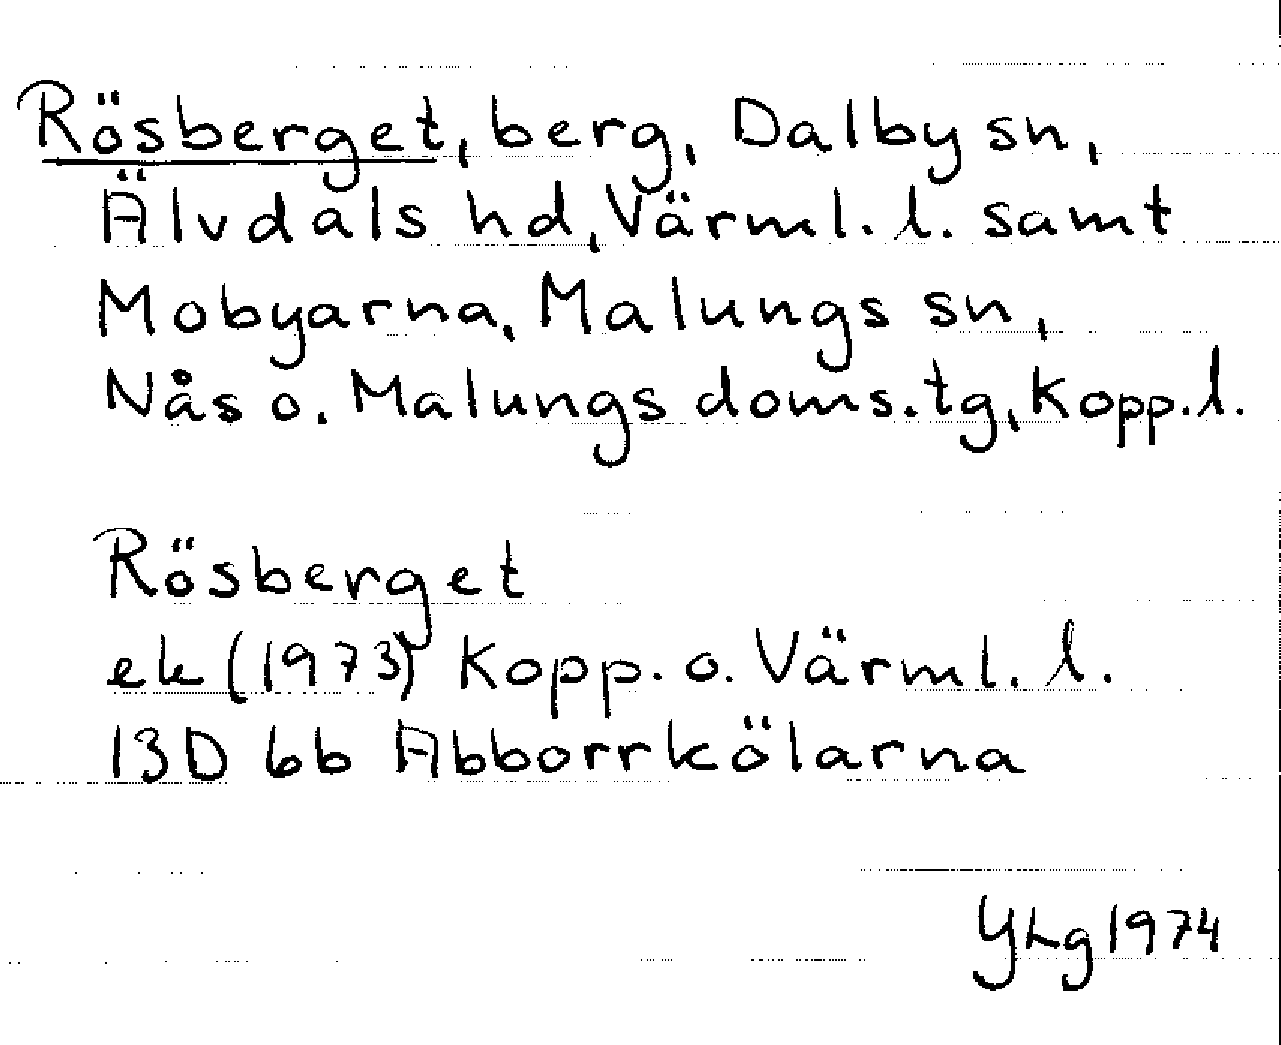 Rösberget, berg, Dalby sn,
Älvdals hd, Värml. l. samt
Mobyarna, Malungs sn,
Nås o. Malungs doms.tg, Kopp.l.
Rösberget
ek (1973) Kopp. o. Värml. l.
13D 6b Abborrkölarna
YLg 1974